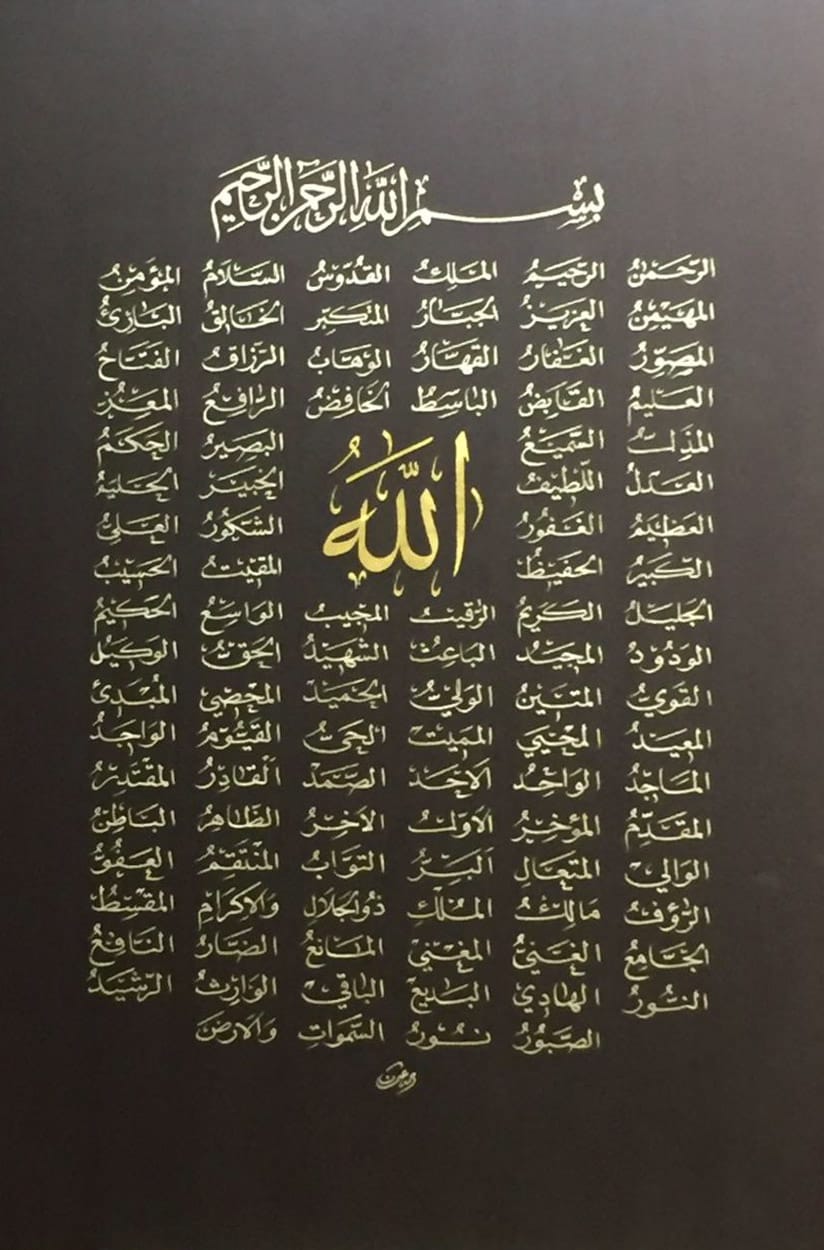 بِسْمِ اللَّهِ الرَّحْمَنِ الرَّحِيمِ
الرَّحْمٰنُ الرَّحِيمُ المَلِكُ القُدُّوسُ السَّلَامُ المُؤْمِنُ
المُهَيْمِنُ العَزِيزُ الجَبَّارُ المُتَكَبِّر الخَالِقُ البَارِئُ
المُصَوِّرُ الغَفَّارُ القَهَّارُ الوَهَّابُ الرَّزَّاقُ الفَتَّاحُ
العَلِيمُ القَابِضُ البَاسِطُ الخَافِضُ الرَّافِعُ المُعِزُّ
المُذِلُّ السَّمِيعُ البَصِيرُ الحَكَمُ
العَدْلُ اللَّطِيفُ الخَبِيرُ الحَلِيمُ
اللَّهُ
العَظِيمُ الغَفُورُ الشَّكُورُ العَلِيُّ
الكَبِيرُ الحَفِيظُ المُقِيتُ الحَسِيبُ
الجَلِيلُ الكَرِيمُ الرَّقِيبُ المُجِيبُ الوَاسِعُ الحَكِيمُ
الوَدُودُ المَجِيدُ البَاعِثُ الشَّهِيدُ الحَقُّ الوَكِيلُ
القَوِيُّ المَتِينُ الوَلِيُّ الحَمِيدُ المُحْصِي المُبْدِئُ
المُعِيدُ المُحْيِي المُمِيتُ الحَيُّ القَيُّومُ الوَاجِدُ
المَاجِدُ الوَاحِدُ الاَحَدُ الصَّمَدُ القَادِرُ المُقْتَدِرُ
المُقَدِّمُ المُؤَخِّرُ الاَوَّلُ الآخِرُ الظَّاهِرُ البَاطِنُ
الوَالِي المُتَعَالِ البَرُّ التَّوَّابُ المُنْتَقِمُ العَفُوُّ
الرَّؤُفُ مَالِكُ المُلْكِ ذُوالجَلَالِ وَالاِكْرَامِ المُقْسِطُ
الجَامِعُ الغَنِيُّ المُغْنِي المَانِعُ الضَّارُ النَّافِعُ
النُّورُ الهَادِي البَدِيعُ البَاقِي الوَارِثُ الرَّشِيدُ
الصَّبُورُ نُورُ السَّمٰوَاتِ وَالاَرْضِ